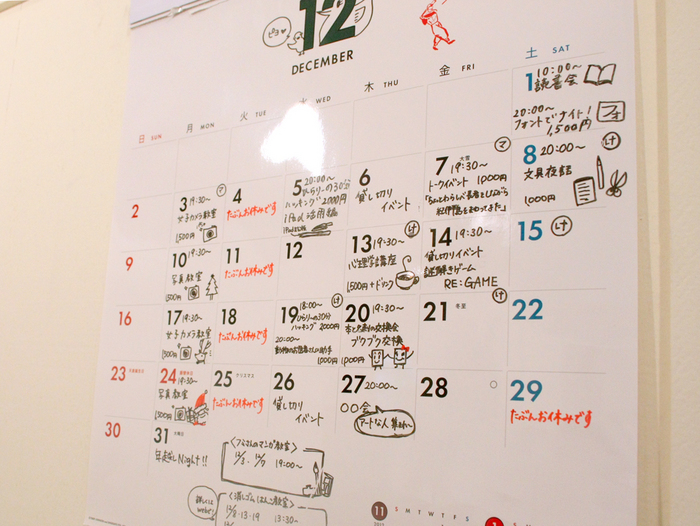 ピヨ
12
DECEMBER
日 SUN
月 MON
火 TUE
水 WED
木 THU
金 FRI
土 SAT
1 10:00〜
読書会
20:00〜
フォントでナイト!
1,500円
フォ
2
3 19:30〜 マ
女子カメラ教室
1,500円
4
たぶんお休みです
5 20:00〜
ひらりーの30分
ハッキング 2000円
iPad活用編
6
貸し切り
イベント
7 大雪 19:30〜 マ
トークイベント 1000円
8 20:00〜 け
文具夜話
1000円
9
10 19:30〜
写真教室
1500円
11
たぶんお休みです
12
13 19:30〜 け
心理学講座
1500円+ドリンク
14 19:30〜
貸し切りイベント
謎解きゲーム
RE:GAME
15 け
16
17 19:30〜
女子カメラ教室
1500円
18
たぶんお休みです
19 18:00〜 け
ひらりーの30分
ハッキング 2000円
20:00〜
1000円
20 19:30〜
本と文具の交換会
ブクブク交換
1000円
21 冬至 け
22
23 天皇誕生日
24 振替休日 19:30〜
写真教室
1500円
25 クリスマス
たぶんお休みです
26
貸し切り
イベント
27 20:00〜
〇〇会
アートな人 集まれ〜
28
29
たぶんお休みです
30
31 大晦日
年越しNight!!
12/3・12/17 19:00〜
詳しくは
webで!
<消しゴムはんこ教室>
12/8・13・19 13:30〜
11
S M T W T F S